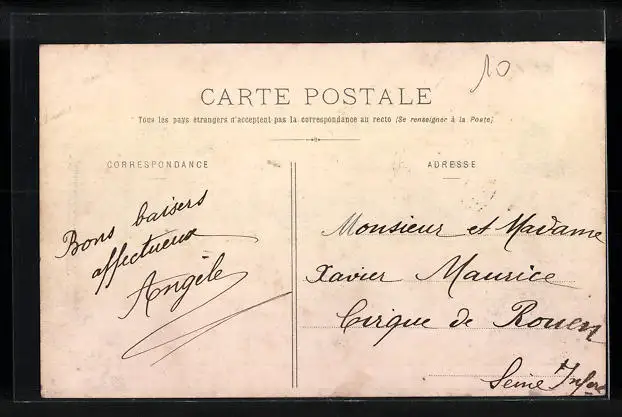 10
CARTE POSTALE
Tous les pays étrangers n'acceptent pas la correspondance au recto (Se renseigner à la Poste)
CORRESPONDANCE
Bons baisers
affectueux
Angèle
ADRESSE
Monsieur et Madame
Xavier Maurice
Cirque de Rouen
Seine Infre